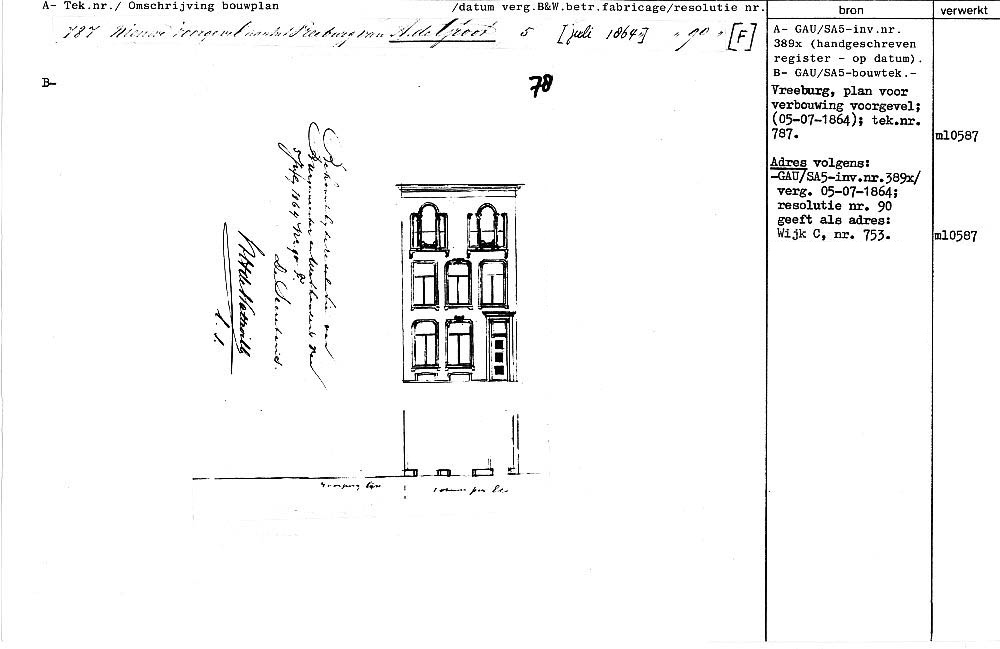 A- Tek.nr./ Omschrijving bouwplan /datum verg.B&W.betr.fabricage/resolutie nr.
bron
verwerkt
787 Nieuwe voorgevel aan het Vreeburg van A. de Groot 5 [juli 1864] „ 90 „ [F]
A- GAU/SA5-inv.nr.
389x (handgeschreven
register - op datum).
B- GAU/SA5-bouwtek.-
Vreeburg, plan voor
verbouwing voorgevel;
(05-07-1864); tek.nr.
787.
ml0587
Adres volgens:
-GAU/SA5-inv.nr.389x/
verg. 05-07-1864;
resolutie nr. 90
geeft als adres:
Wijk C, nr. 753.
ml0587
B-
78
Behoort bij de resolutie van
Burgemeester en Wethouders van
5 July 1864 Nr. 90 F.
De Secretaris.
l. S.